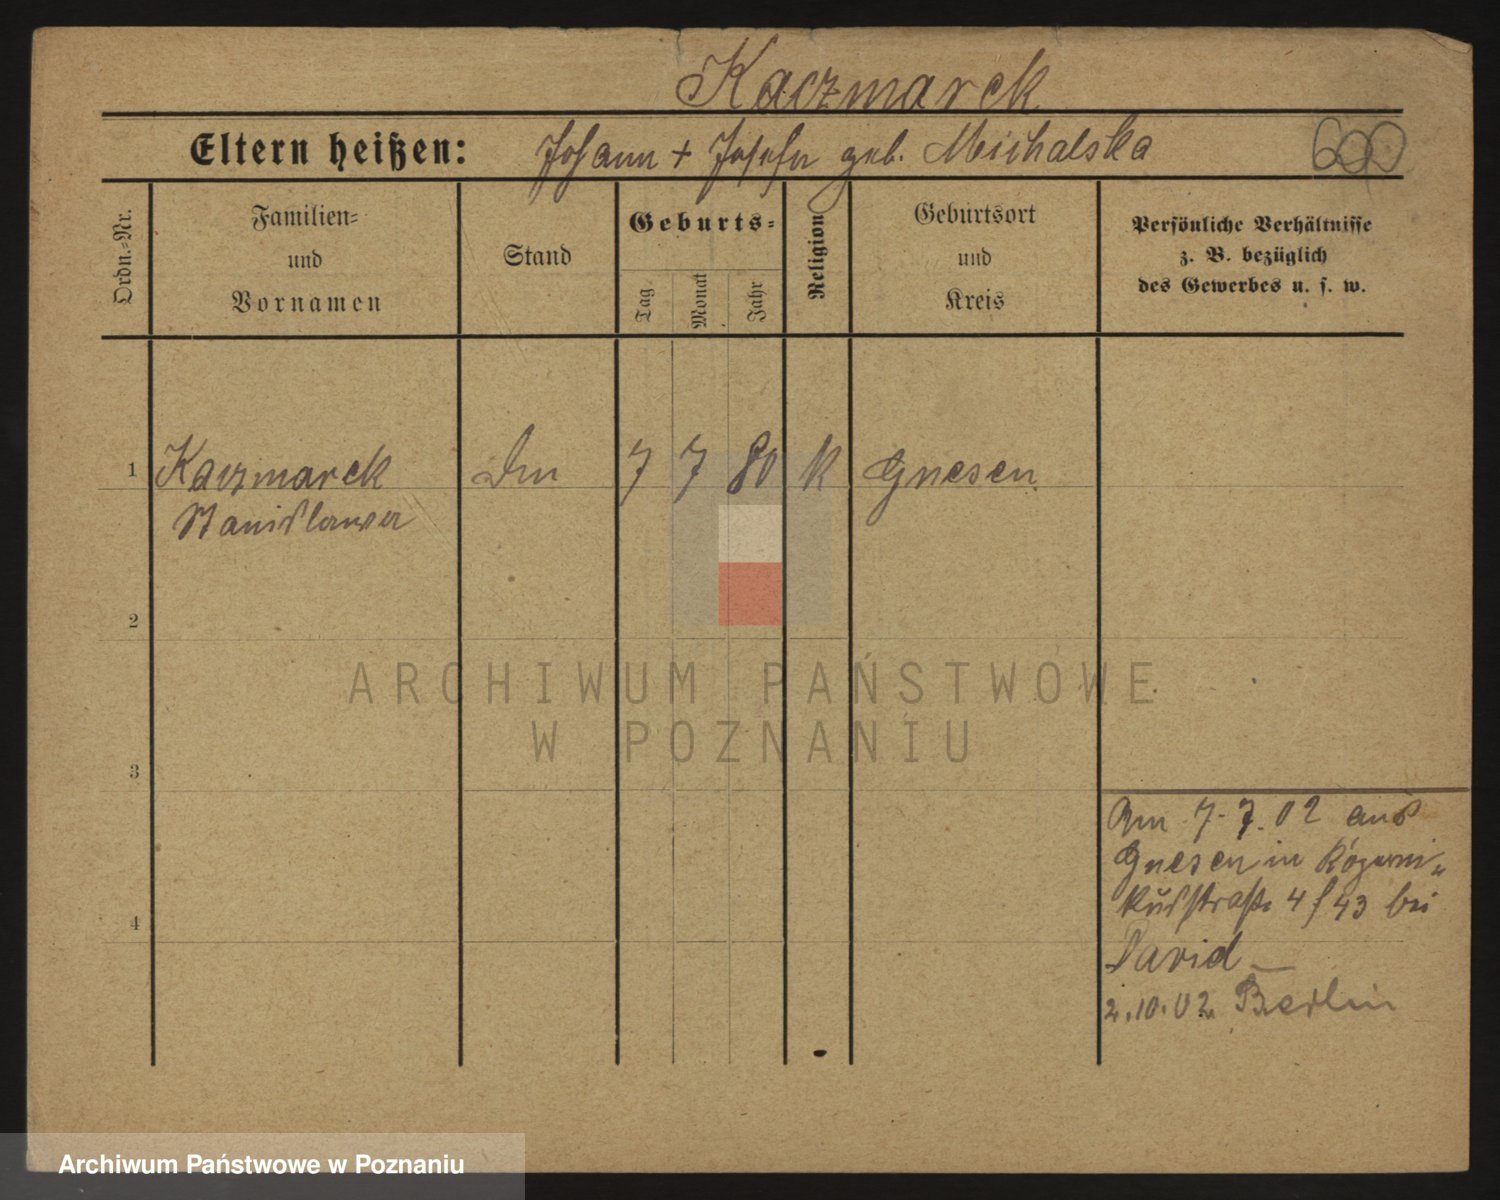 Kaczmarek
Eltern heißen: Johann + Josefa geb. Michalska
600
Ordn.=Nr.
Familien=
und
Vornamen
Stand
Geburts=
Tag
Monat
Jahr
Religion
Geburtsort
und
Kreis
Persönliche Verhältnisse
z. B. bezüglich
des Gewerbes u. s. w.
1 Kaczmarek 7 7 80 K Gnesen
Stanislawa
2
3
4
Am 7.7.02 aus
Gnesen in
4 f 43 bei
David
2.10.02 Berlin
ARCHIWUM PAŃSTWOWE
W POZNANIU
Archiwum Państwowe w Poznaniu